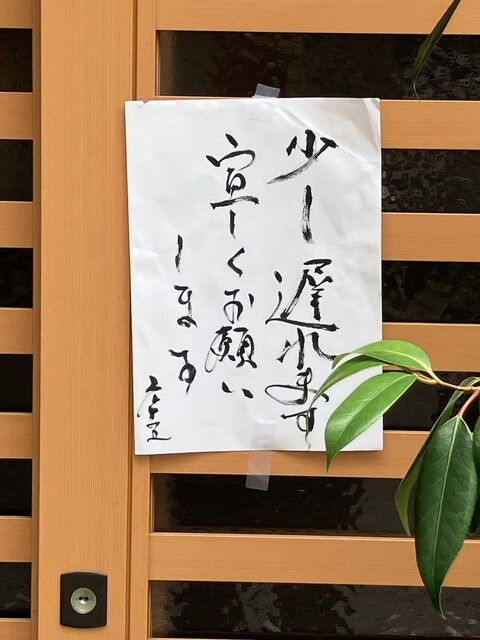 少し遅れます
宜しくお願い
します